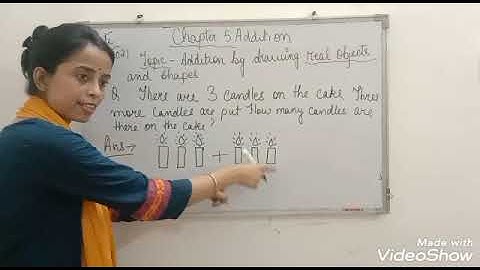 Chapter 5 Addition
Topic - Addition by drawing real objects
and shapes
Q There are 3 candles on the cake Three
more candles are put How many candles are
there on the cake?
Ans →
+
Made with
VideoShow